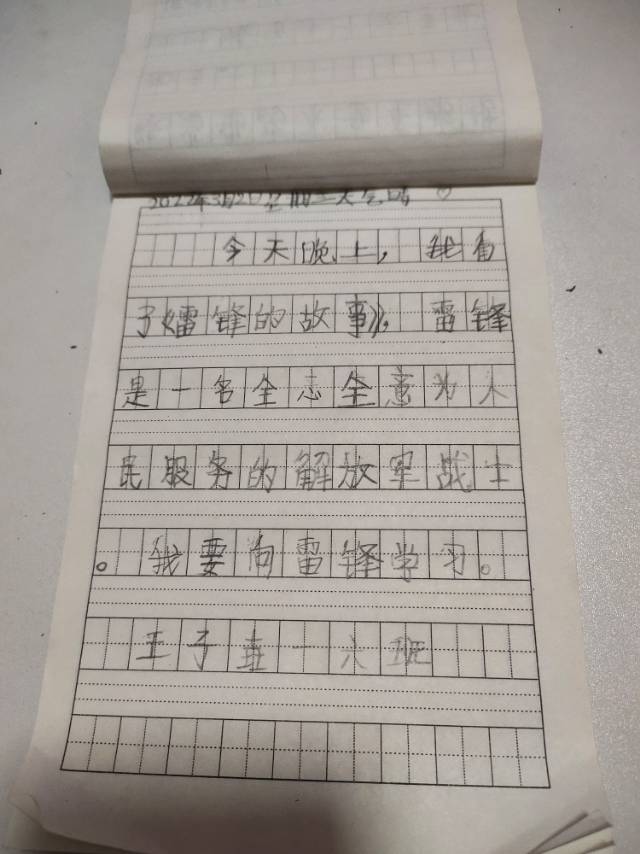 2022年3月2日星期三天气晴
今天晚上，我看
了《雷锋的故事》，雷锋
是一名全心全意为人
民服务的解放军战士
。我要向雷锋学习。
王子 一 六班